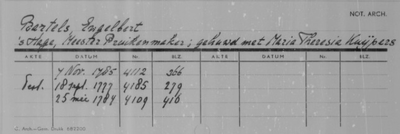 NOT. ARCH.
Bartels, Engelbert
's Hage, Meester Pruikenmaker; gehuwd met Maria Theresia Kuijpers
AKTE DATUM Nr. BLZ. AKTE DATUM Nr. BLZ.
7 Nov. 1785 4112 366
Test. 18 sept. 1777 4185 279
25 mei 1784 4109 410